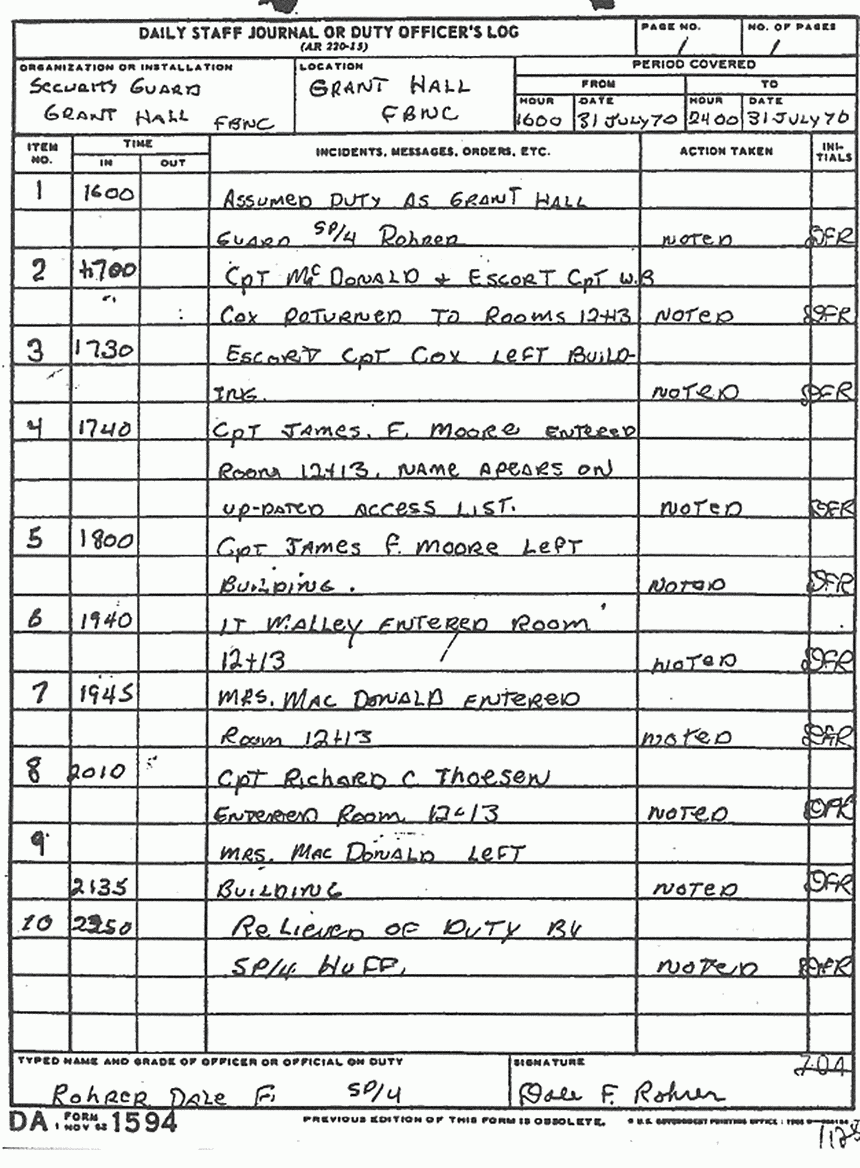 DAILY STAFF JOURNAL OR DUTY OFFICER'S LOG
(AR 220-15)
PAGE NO.
1
NO. OF PAGES
1
ORGANIZATION OR INSTALLATION
SECURITY GUARD
GRANT HALL FBNC
LOCATION
GRANT HALL
FBNC
PERIOD COVERED
FROM TO
HOUR DATE HOUR DATE
1600 31 JULY 70 2400 31 JULY 70
ITEM NO. TIME IN OUT INCIDENTS, MESSAGES, ORDERS, ETC. ACTION TAKEN INI-TIALS
1 1600 ASSUMED DUTY AS GRANT HALL
GUARD SP/4 Rohrer NOTED DFR
2 1700 CPT McDONALD + ESCORT CPT W.R
COX RETURNED TO ROOMS 12+13 NOTED DFR
3 1730 ESCORT CPT COX LEFT BUILD-
ING. NOTED DFR
4 1740 CPT JAMES. F. MOORE ENTERED
ROOM 12+13. NAME APEARS ON
UP-DATED ACCESS LIST. NOTED DFR
5 1800 CPT JAMES F. MOORE LEFT
BUILDING. NOTED DFR
6 1940 LT MALLEY ENTERED ROOM
12+13 NOTED DFR
7 1945 MRS. MAC DONALD ENTERED
ROOM 12+13 NOTED DFR
8 2010 CPT RICHARD C THOESEN
ENTERED ROOM 12+13 NOTED DFR
9 MRS. MAC DONALD LEFT
2135 BUILDING NOTED DFR
10 2350 RELIEVED OF DUTY BY
SP/4 HUFF. NOTED DFR
TYPED NAME AND GRADE OF OFFICER OR OFFICIAL ON DUTY
ROHRER DALE F. SP/4
SIGNATURE
Dale F. Rohrer
204
DA FORM 1 NOV 62 1594
PREVIOUS EDITION OF THIS FORM IS OBSOLETE.
U.S. GOVERNMENT PRINTING OFFICE